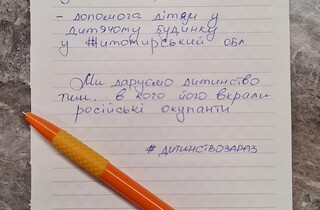 - допомога дітям у
дитячому будинку
у Житомирській обл
Ми даруємо дитинство
тим, в кого його вкрали
російські окупанти
#дитинствозараз